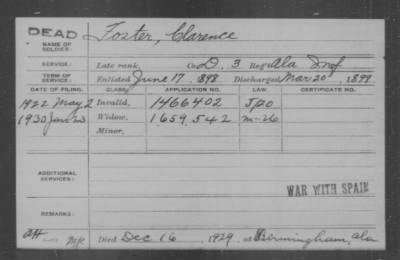 DEAD Foster, Clarence
NAME OF
SOLDIER:
SERVICE: Late rank, Co. D, 3 Reg't Ala Inf
TERM OF
SERVICE: Enlisted June 17, 1898 Discharged Mar 20, 1899
DATE OF FILING. CLASS. APPLICATION NO. LAW. CERTIFICATE NO.
1922 May 2 Invalid, 1466402
1930 Jan 23 Widow, 1659,542 M-26
Minor,
ADDITIONAL
SERVICES:
WAR WITH SPAIN
REMARKS:
Died Dec 16, 1929, at Birmingham, Ala